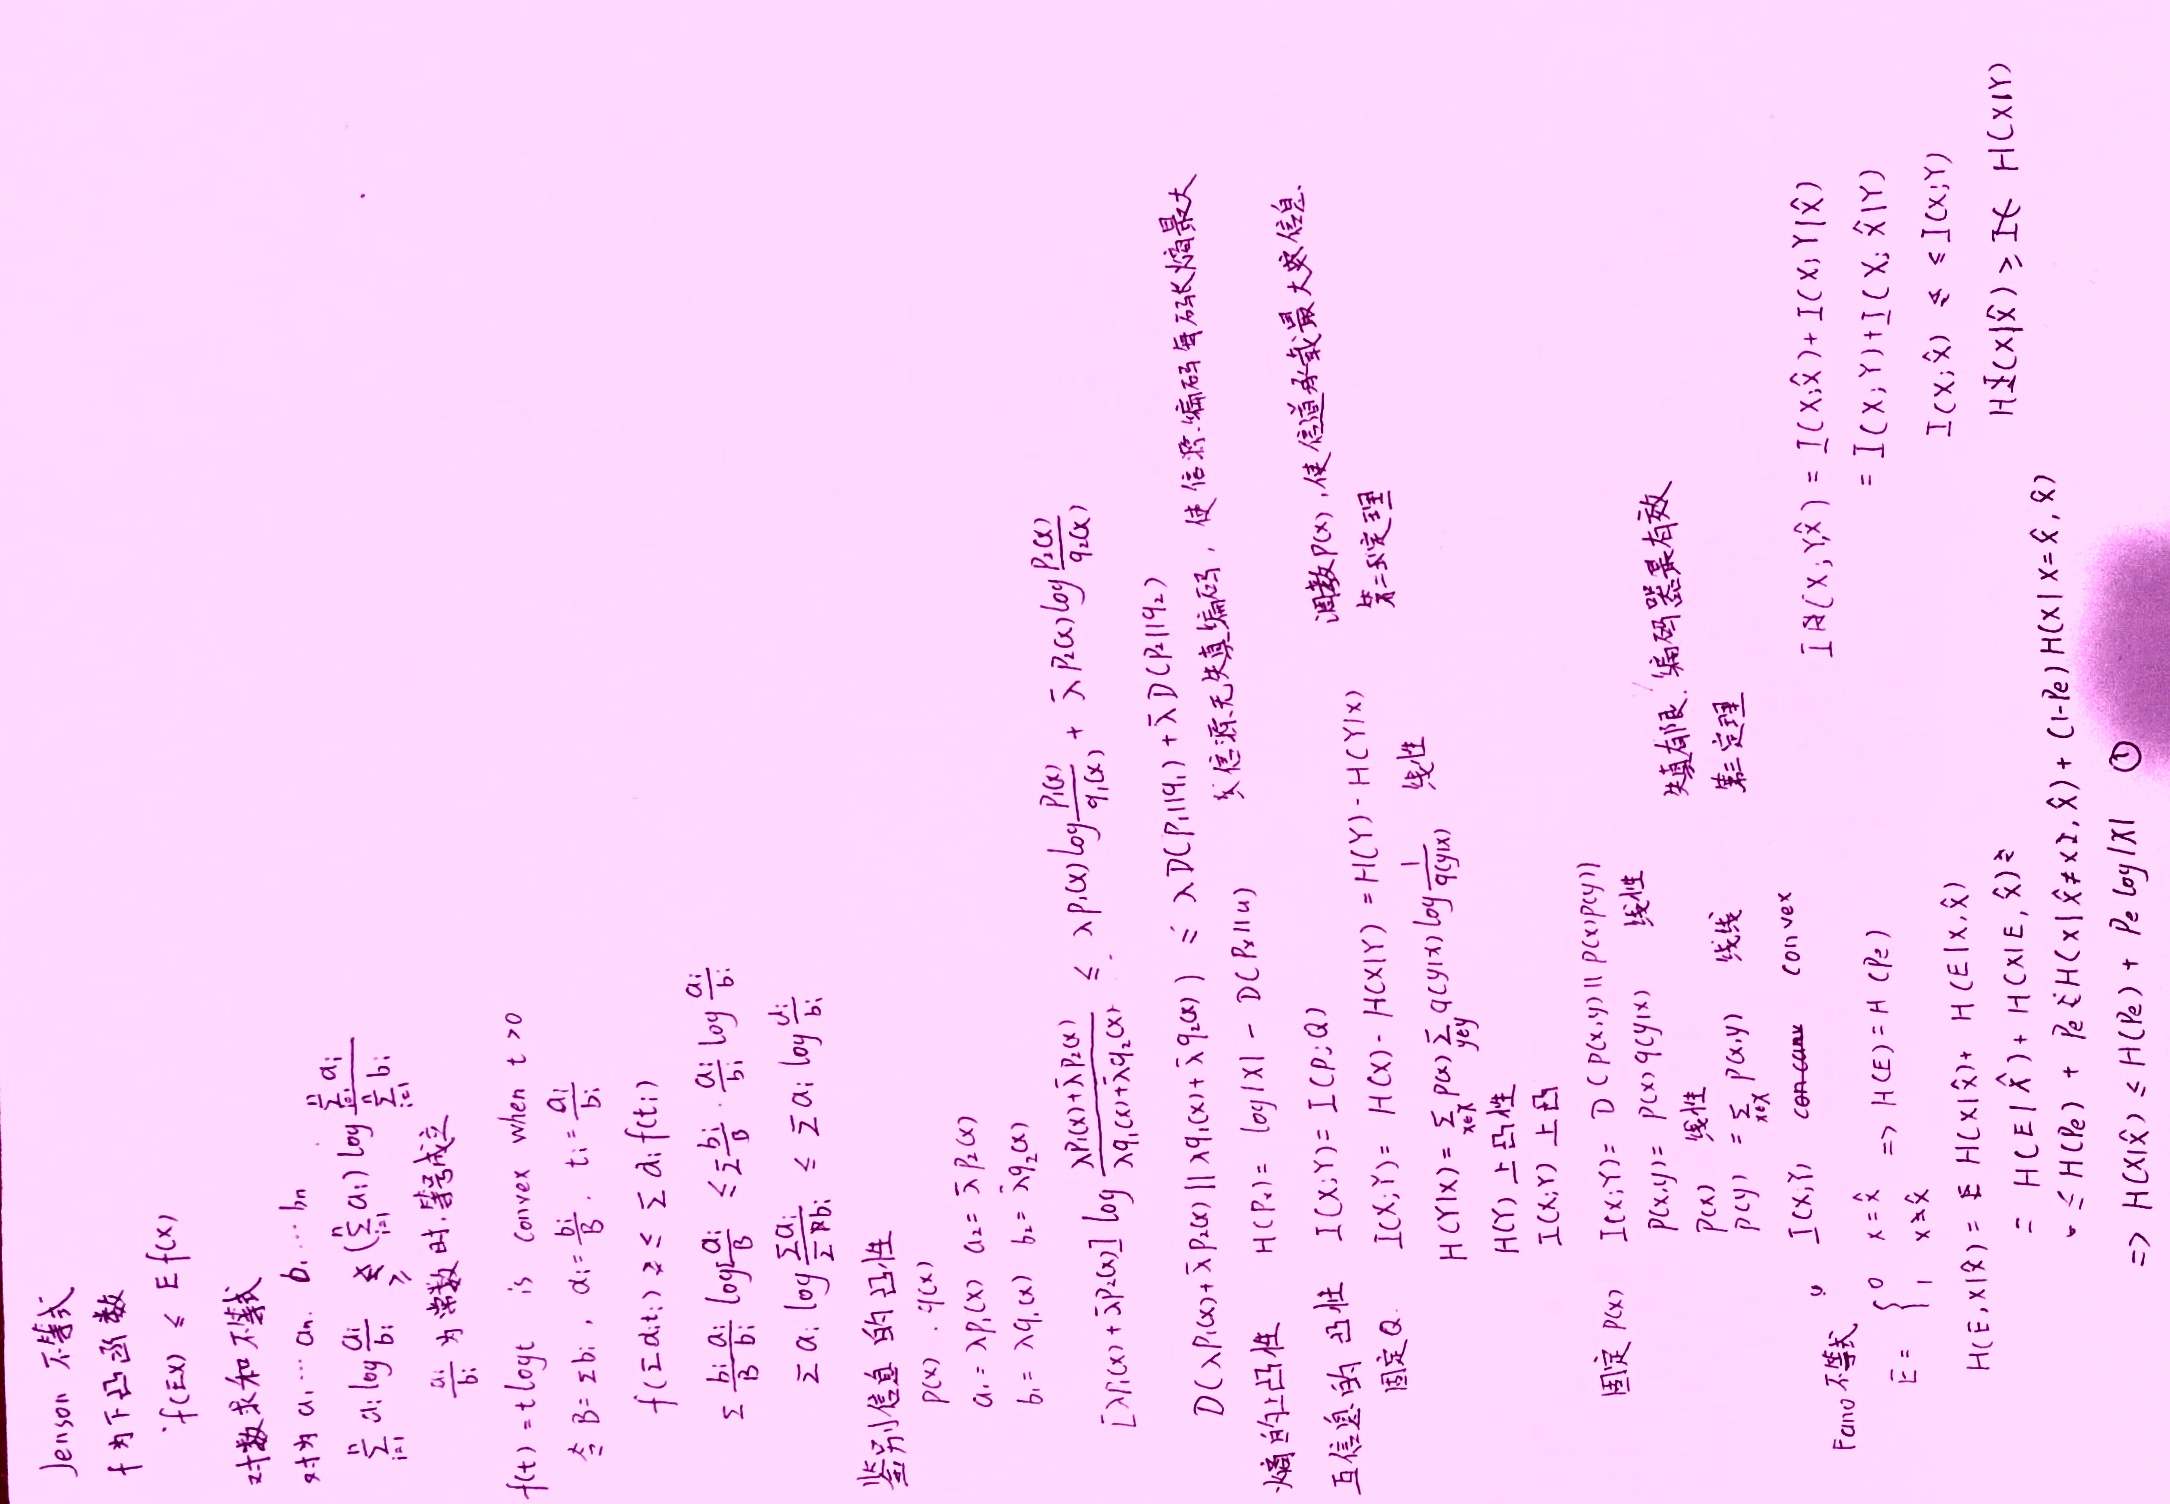 Jenson 不等式
f为下凸函数
f(EX) ≤ E f(X)
对数求和不等式
对为 a₁…aₙ. b₁…bₙ
∑_{i=1}^{n} aᵢ log aᵢ/bᵢ ≥ (∑_{i=1}^{n} aᵢ) log (∑_{i=1}^{n} aᵢ)/(∑_{i=1}^{n} bᵢ)
aᵢ/bᵢ 为常数时. 等号成立
f(t) = t log t is convex when t > 0
令 B = Σbᵢ , αᵢ = bᵢ/B . tᵢ = aᵢ/bᵢ
f(Σαᵢtᵢ) ≤ Σ αᵢ f(tᵢ)
Σ bᵢ/B aᵢ/bᵢ log Σ aᵢ/B ≤ Σ bᵢ/B · aᵢ/bᵢ log aᵢ/bᵢ
Σ aᵢ log Σaᵢ/Σbᵢ ≤ Σ aᵢ log aᵢ/bᵢ
鉴别信息的凸性
p(x) . q(x)
a₁ = λp₁(x) a₂ = λ̄ p₂(x)
b₁ = λq₁(x) b₂ = λ̄q₂(x)
[λp₁(x) + λ̄p₂(x)] log (λp₁(x) + λ̄p₂(x))/(λq₁(x) + λ̄q₂(x)) ≤ λp₁(x) log p₁(x)/q₁(x) + λ̄ p₂(x) log p₂(x)/q₂(x)
D(λp₁(x) + λ̄ p₂(x) || λq₁(x) + λ̄ q₂(x)) ≤ λD(p₁||q₁) + λ̄ D(p₂||q₂)
熵的上凸性 H(Pₓ) = log|X| − D(Pₓ||u) 信源无失真编码，使信源编码每码长熵最大
互信息的凸性 I(X;Y) = I(p;Q) 调数p(x),使信道承载最大信息.
固定Q. I(X;Y) = H(X) - H(X|Y) = H(Y) - H(Y|X) 第二定理
H(Y|X) = ∑_{x∈X} p(x) ∑_{y∈Y} q(y|x) log 1/q(y|x) 线性
H(Y) 上凸性
I(X;Y) 上凸
固定 p(x) I(X;Y) = D(p(x,y) || p(x)p(y))
p(x,y) = p(x) q(y|x) 线性
p(x) 线性 失真有限. 编码器最有效
p(y) = ∑_{x∈X} p(x,y) 线线 第三定理
I(X;Y) concave convex
Fano 不等式
E = { 0 x = x̂
1 x ≠ x̂ => H(E) = H(Pe)
H(E,X|X̂) = H(X|X̂) + H(E|X,X̂)
= H(E|X̂) + H(X|E,X̂)
≤ H(Pe) + Pe H(X|X̂≠X,X̂) + (1-Pe) H(X|X=X̂,X̂)
=> H(X|X̂) ≤ H(Pe) + Pe log|X| ①
I(X;Y,X̂) = I(X;X̂) + I(X;Y|X̂)
= I(X;Y) + I(X;X̂|Y)
I(X;X̂) ≤ I(X;Y)
H(X|X̂) ≥ H(X|Y)